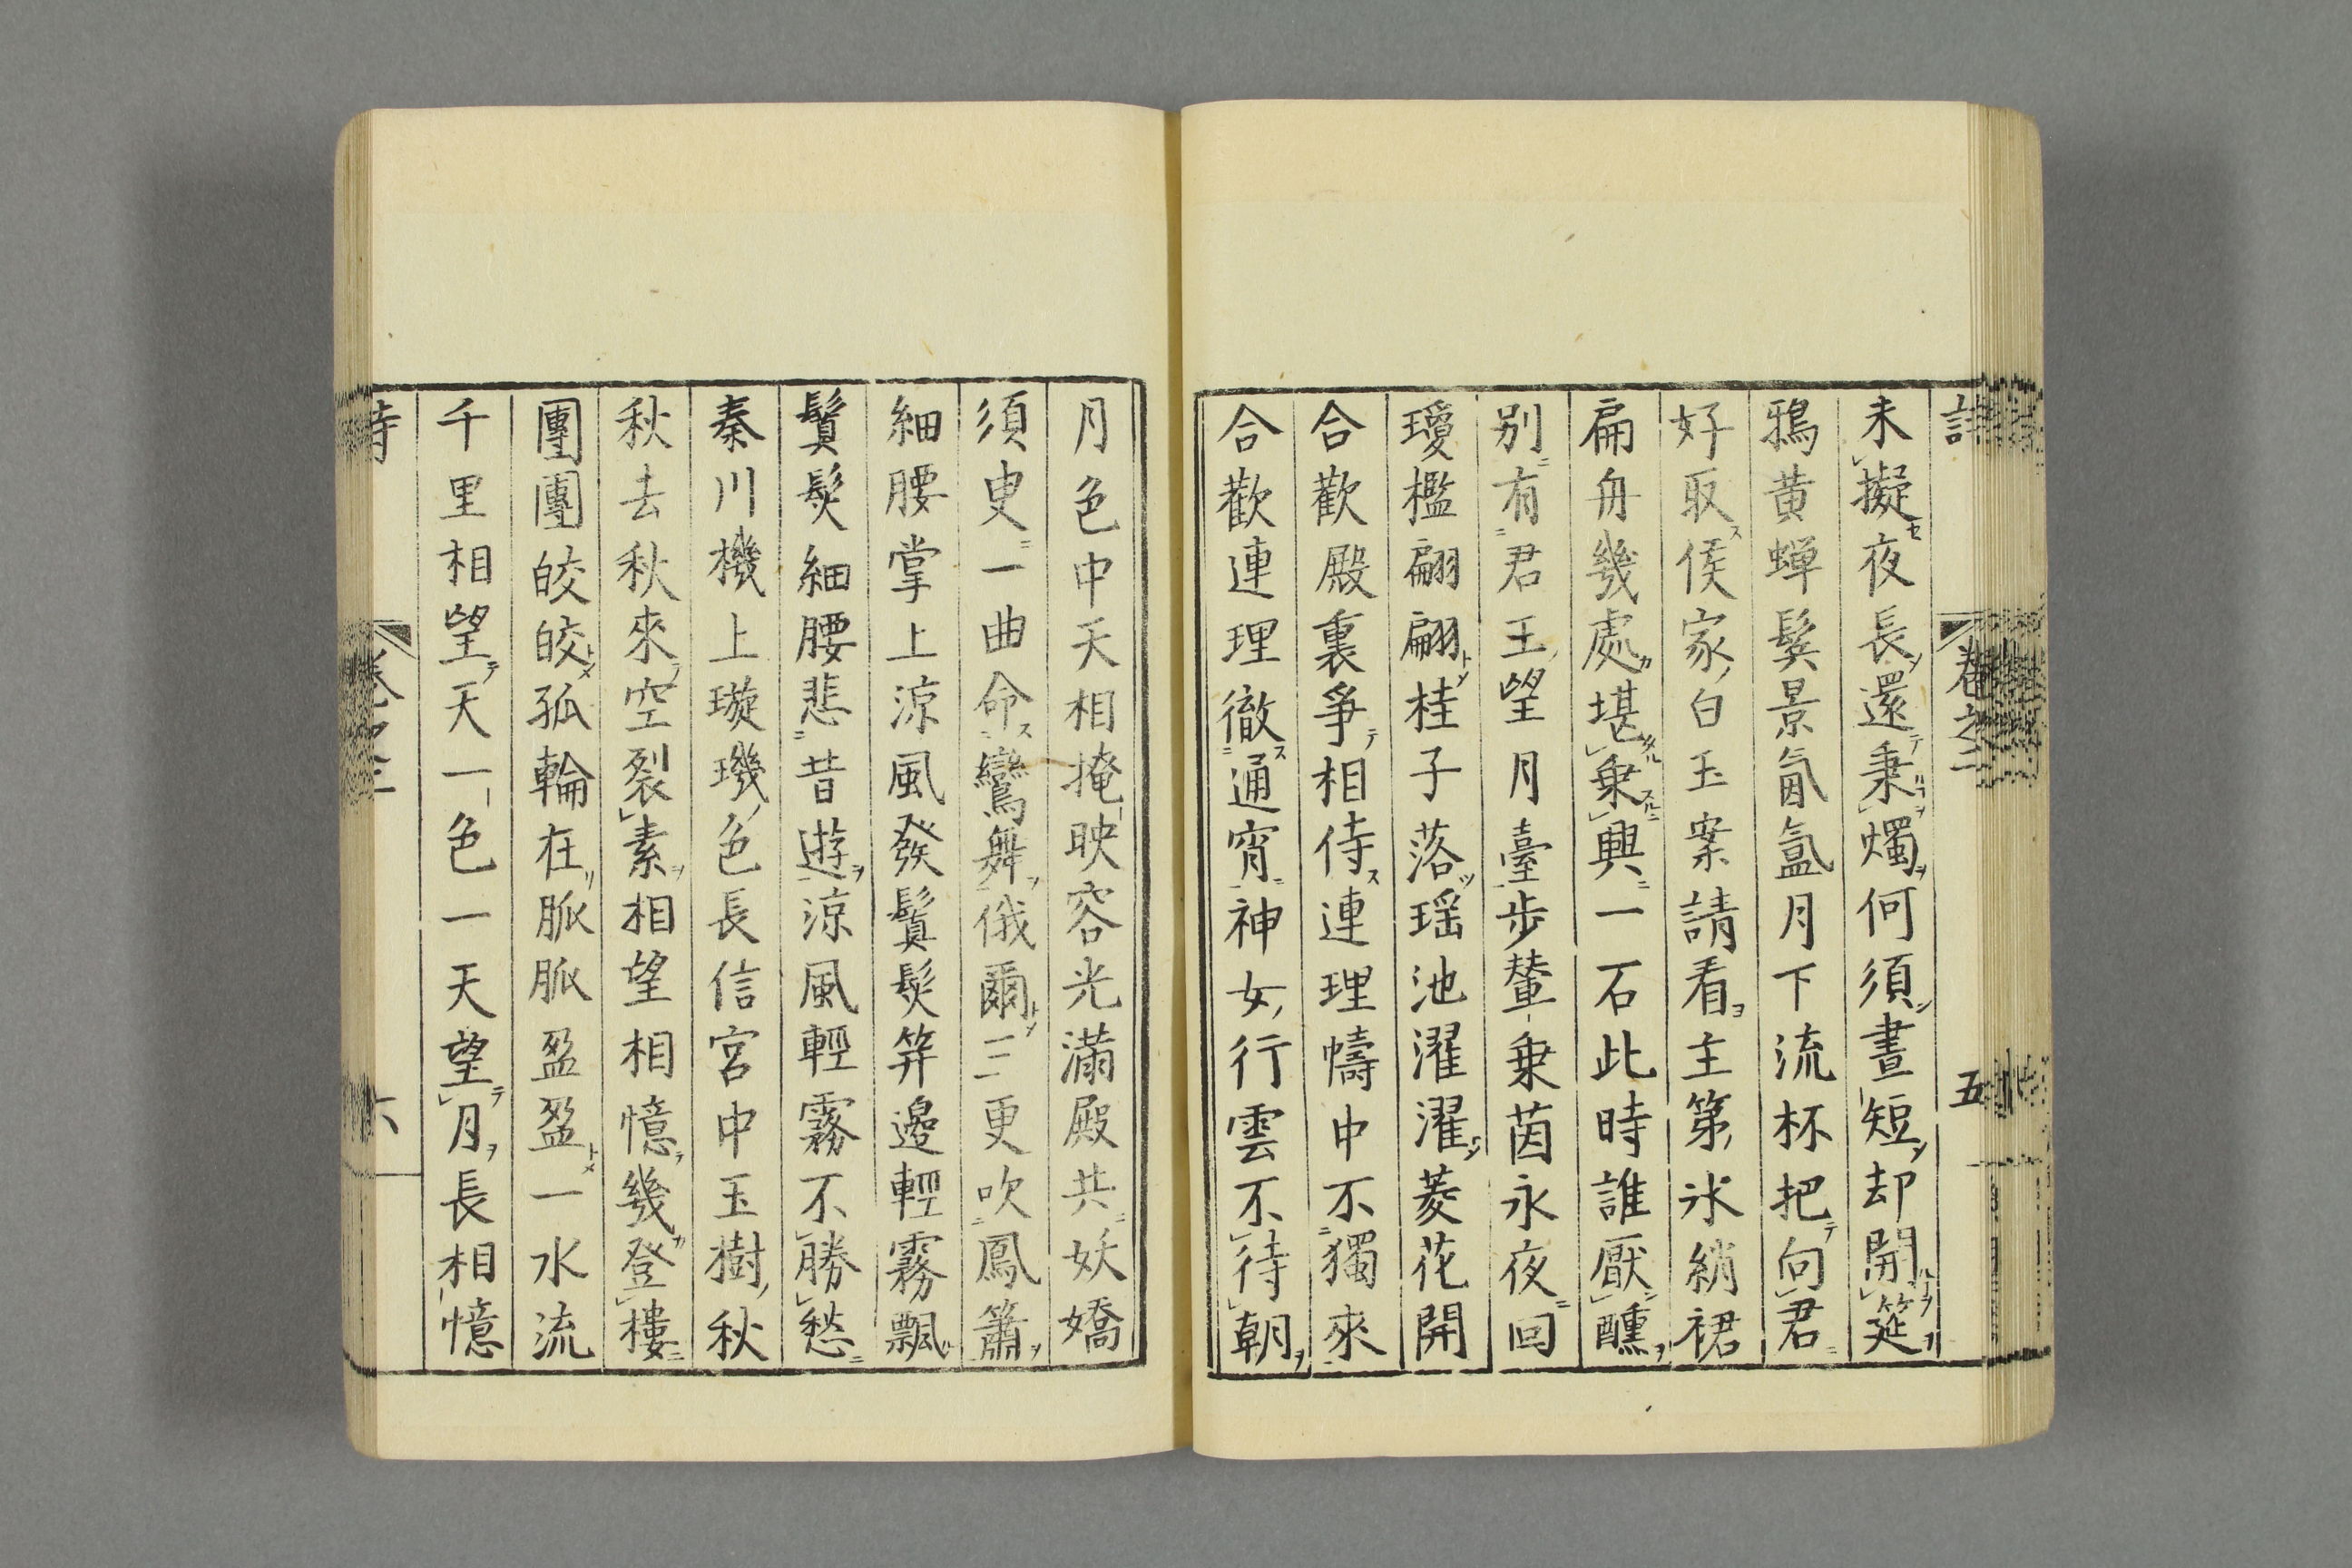 未擬夜長還秉燭何須晝短却開筵
鴉黄蝉鬂景氤氳月下流杯把向君
好取侯家白玉案請看主第氷綃裙
扁舟幾處堪乗興一石此時誰厭醺
別有君王望月臺歩輦乗茵永夜回
瓊檻翩翩桂子落瑶池濯濯菱花開
合歡殿裏爭相侍連理幬中不獨來
合歡連理徹通宵神女行雲不待朝
月色中天相掩映容光滿殿共妖嬌
須叟一曲命鸞舞俄爾三更吹鳳簫
細腰掌上涼風發鬒髮笄邊輕霧飄
鬒髮細腰悲昔遊涼風輕霧不勝愁
秦川機上璇璣色長信宮中玉樹秋
秋去秋來空裂素相望相憶幾登樓
團團皎皎孤輪在脈脈盈盈一水流
千里相望天一色一天望月長相憶
卷之二
五
六